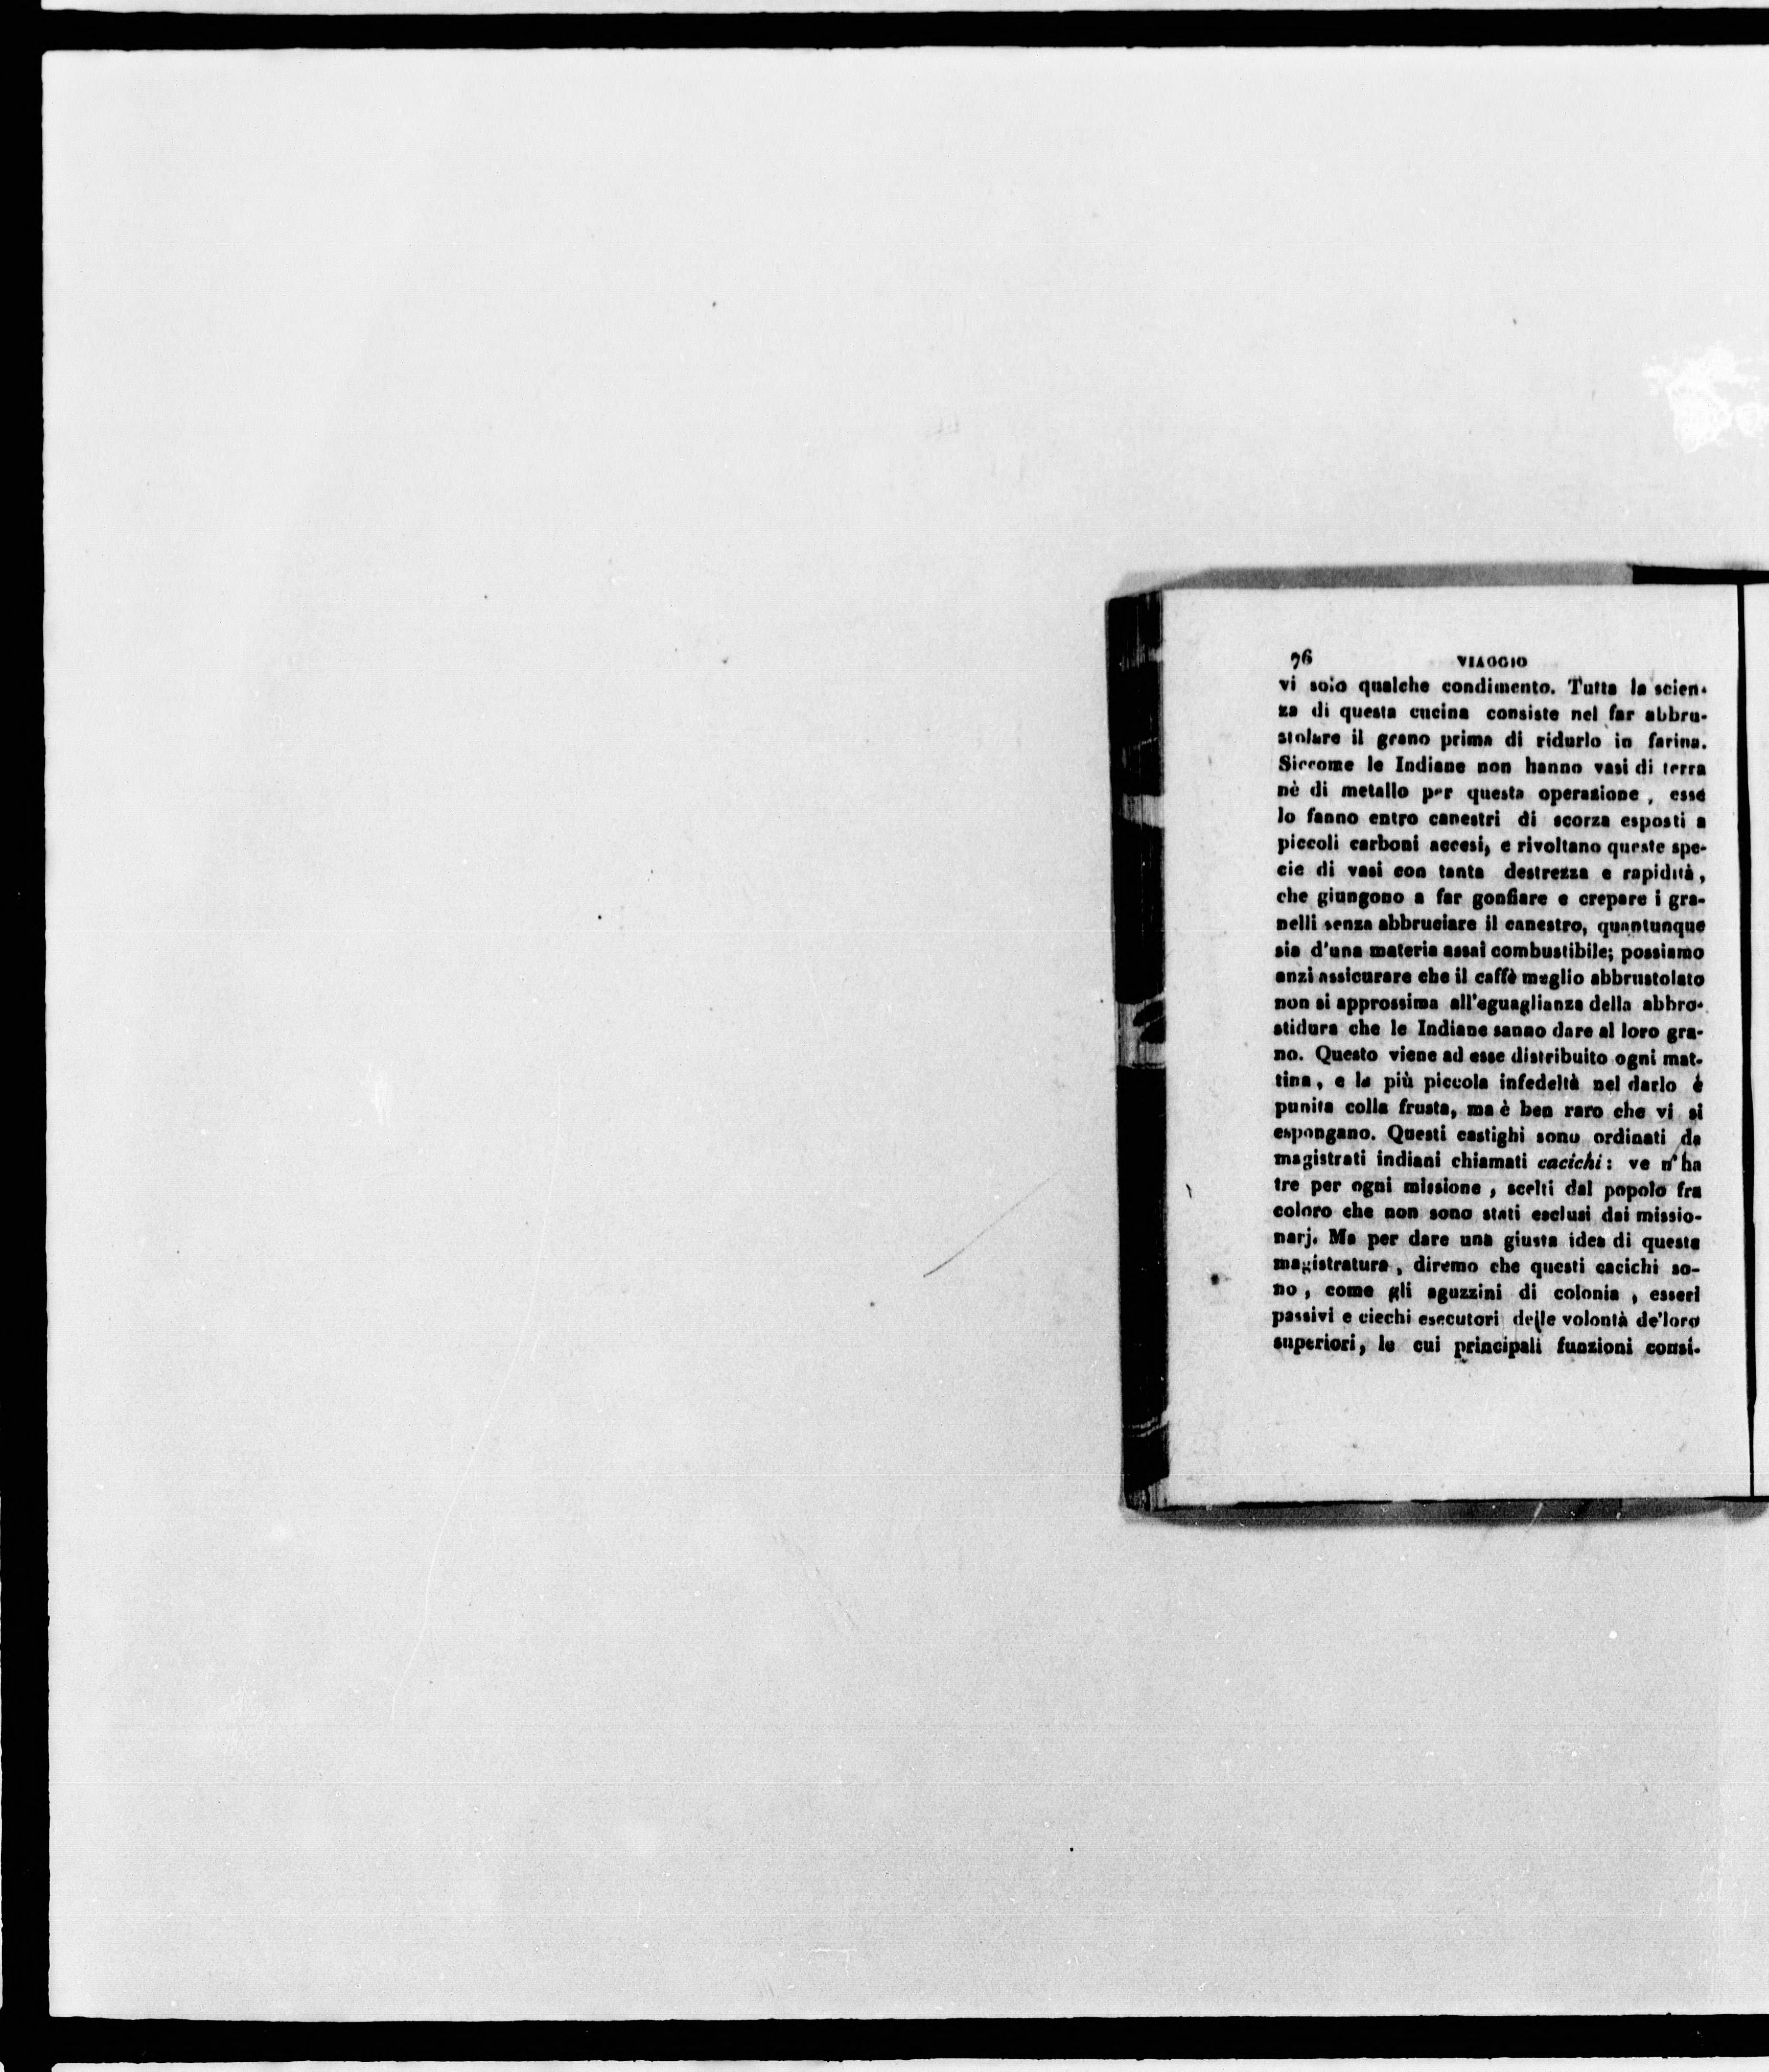 76 VIAGGIO
vi solo qualche condimento. Tutta la scien-
za di questa cucina consiste nel far abbru-
stolare il grano prima di ridurlo in farina.
Siccome le Indiane non hanno vasi di terra
nè di metallo per questa operazione, esse
lo fanno entro canestri di scorza esposti a
piccoli carboni accesi, e rivoltano queste spe-
cie di vasi con tanta destrezza e rapidità,
che giungono a far gonfiare e crepare i gra-
nelli senza abbruciare il canestro, quantunque
sia d'una materia assai combustibile; possiamo
anzi assicurare che il caffè meglio abbrustolato
non si approssima all'eguaglianza della abbro-
stidura che le Indiane sanno dare al loro gra-
no. Questo viene ad esse distribuito ogni mat-
tina, e la più piccola infedeltà nel darlo è
punita colla frusta, ma è ben raro che vi si
espongano. Questi castighi sono ordinati da
magistrati indiani chiamati cacichi: ve n'ha
tre per ogni missione, scelti dal popolo fra
coloro che non sono stati esclusi dai missio-
narj. Ma per dare una giusta idea di questa
magistratura, diremo che questi cacichi so-
no, come gli aguzzini di colonia, esseri
passivi e ciechi esecutori delle volontà de'loro
superiori, le cui principali funzioni consi-